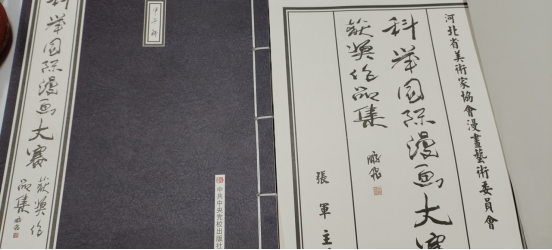 科举国际漫画大赛
获奖作品集
中共中央党校出版社
河北省美術家協會漫畫藝術委員會
科举国际漫画大赛
获奖作品集
張軍主